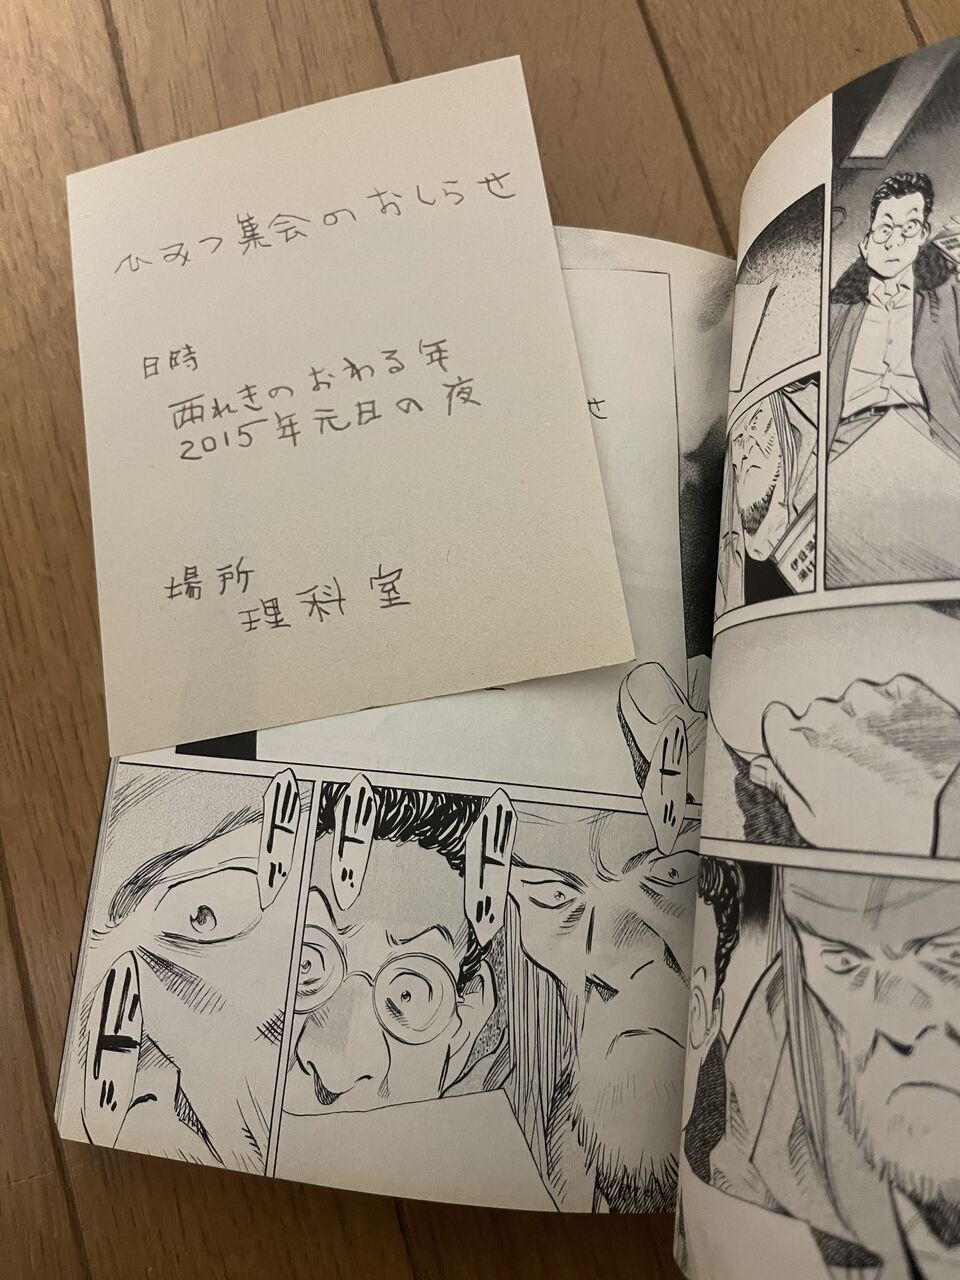 ひみつ集会のおしらせ
日時
西れきのおわる年
2015年元日の夜
場所
理科室
せ
ドッ
ドッ
ドッ
ドッ
ドッ